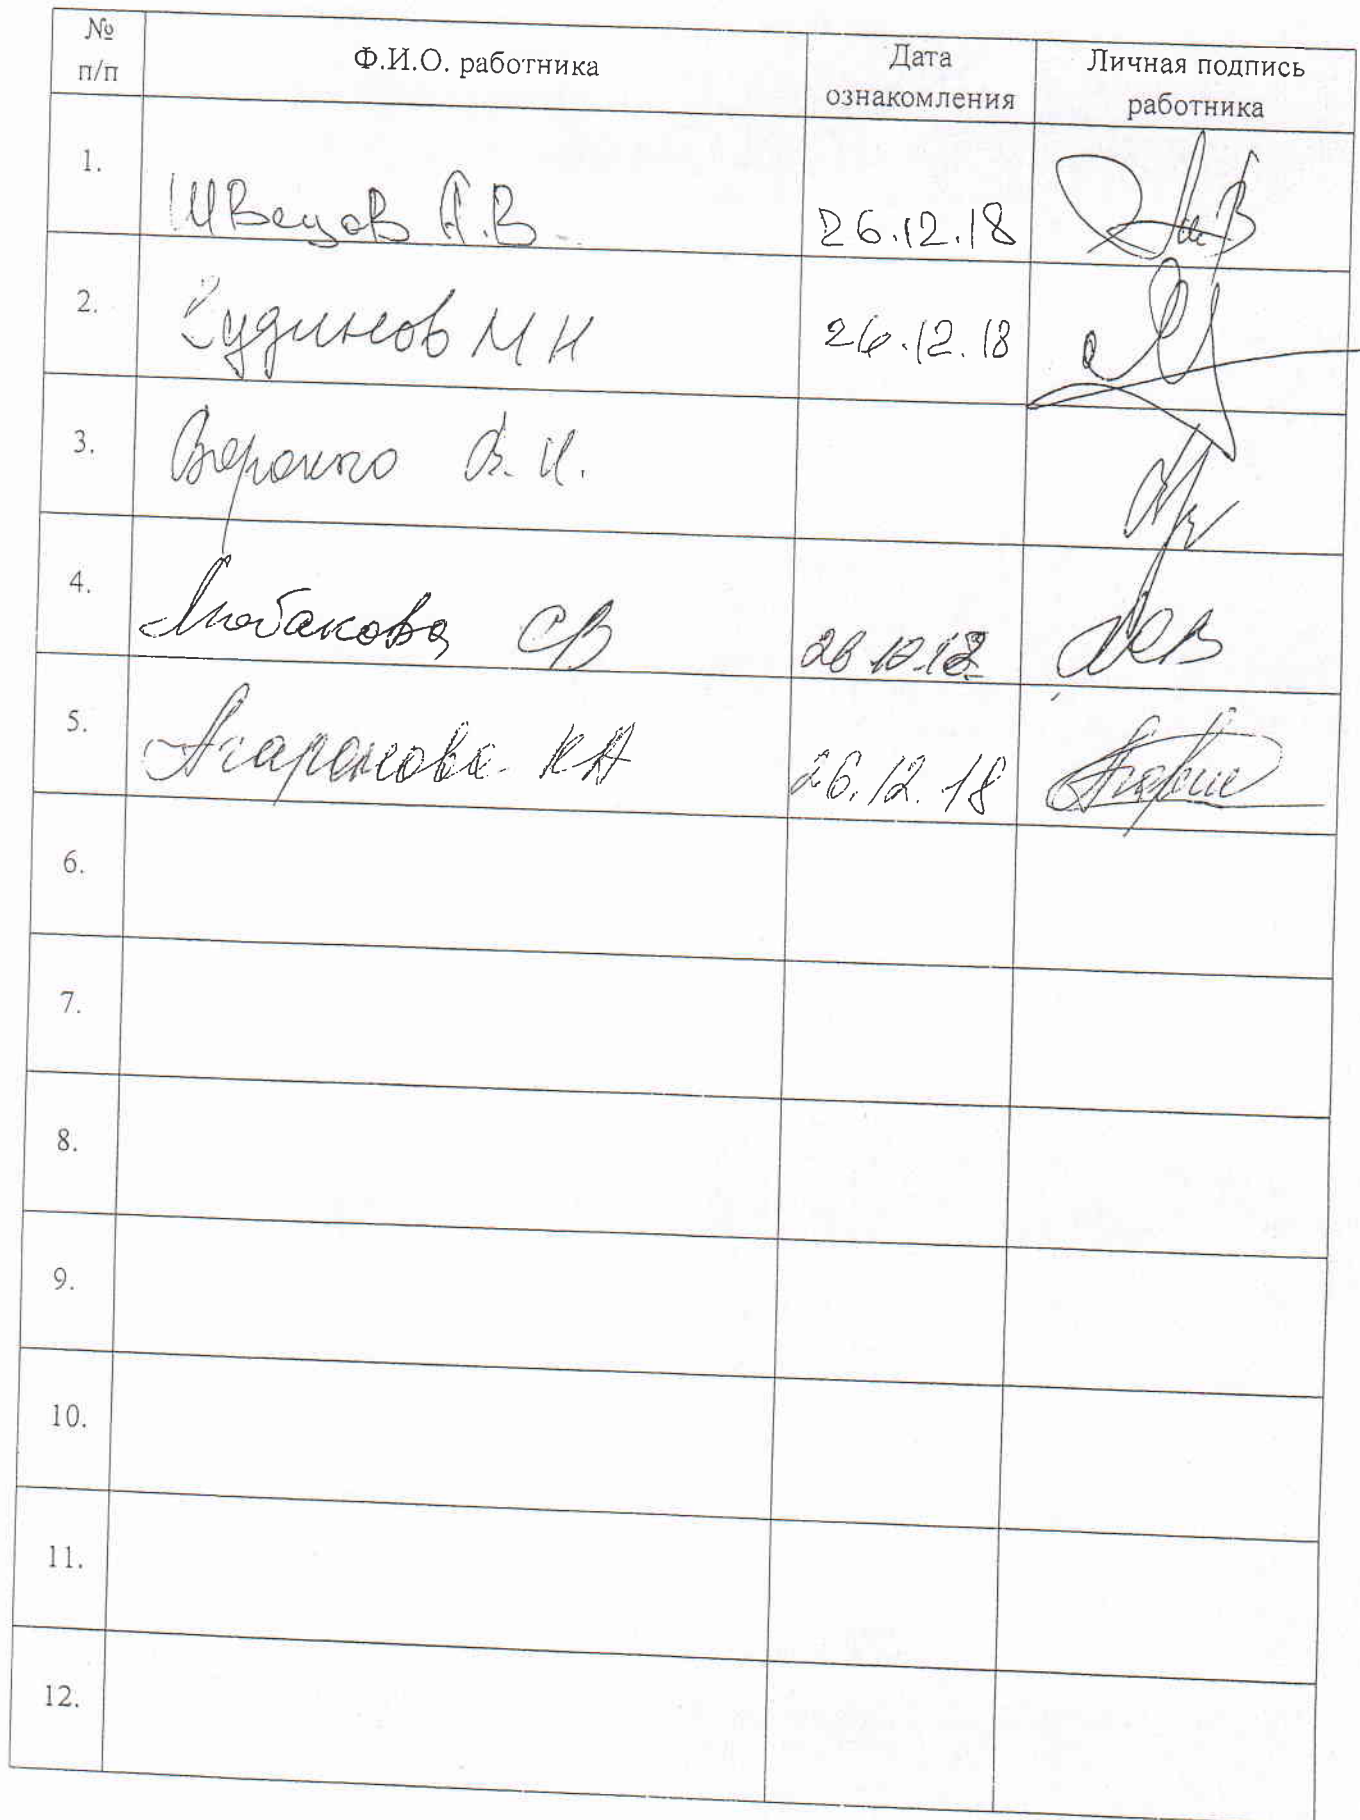 № п/п Ф.И.О. работника Дата ознакомления Личная подпись работника
1. Швецов А.В. 26.12.18
2. Чудинов М Н 26.12.18
3. В.И.
4. Любакова СВ 26 12.18
5. Агаронова КА 26.12.18
6.
7.
8.
9.
10.
11.
12.